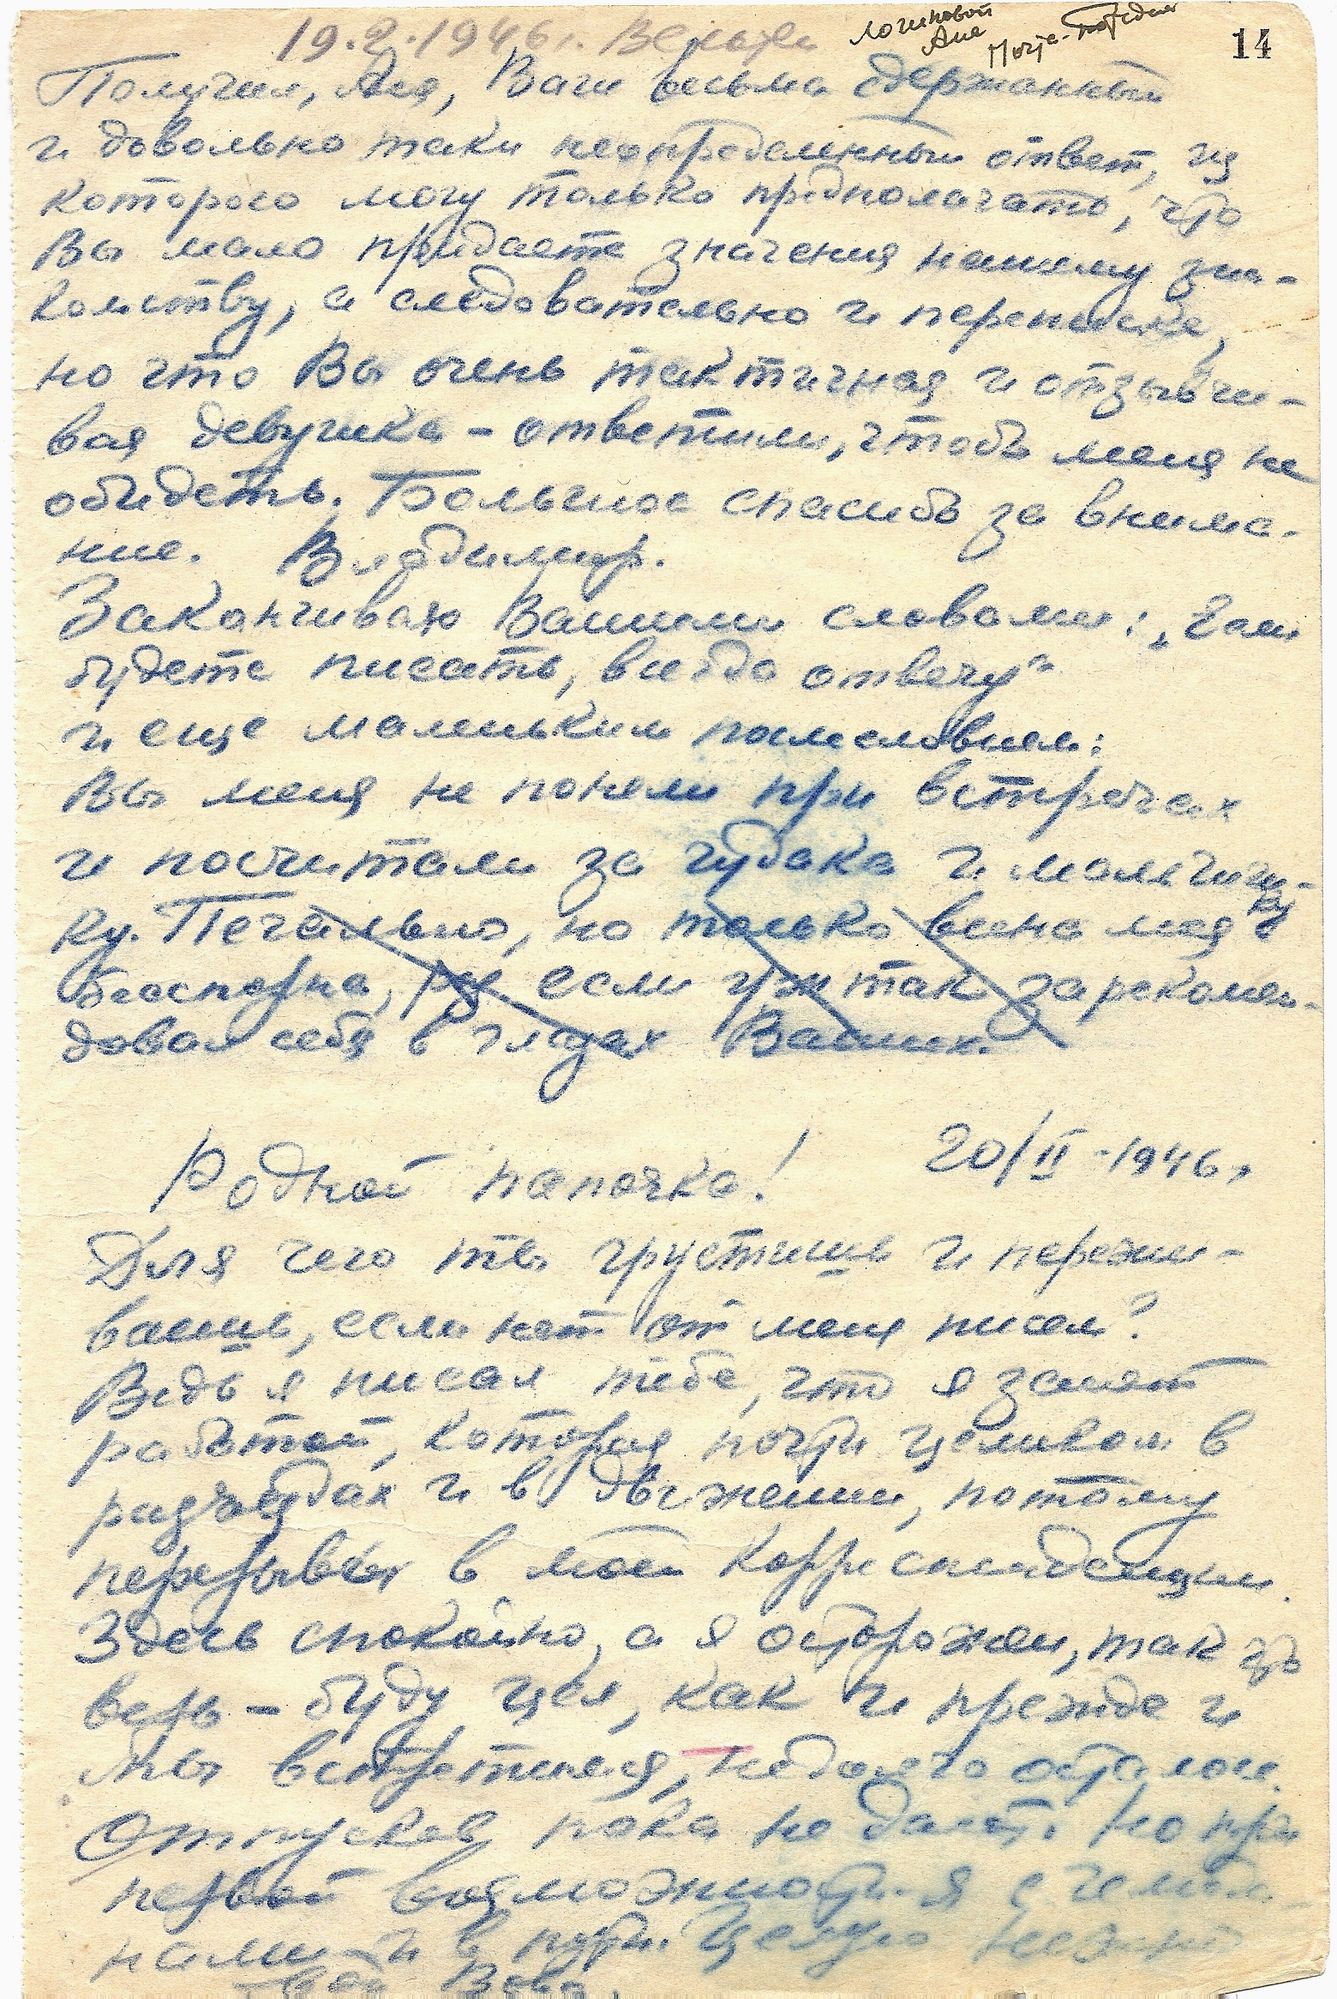 19.2.1946г. Вельтен
Логиновой
Ане
14
Получил, Аня, Ваш весьма сдержанный
и довольно таки неопределенный ответ, из
которого могу только предполагать, что
Вы мало придаете значения нашему зна-
комству, а следовательно и переписке,
но что Вы очень тактичная и отзывчи-
вая девушка – ответили, чтоб меня не
обидеть. Большое спасибо за внима-
ние. Владимир.
Заканчиваю Вашими словами: „Если
будете писать, всегда отвечу“
и еще маленьким послесловием:
Вы меня не поняли при встречах
и посчитали за чудака и мальчиш-
ку. Печально, но только вина моя
бесспорна, если уж так зарекомен-
довал себя в глазах Ваших.
20/II-1946г.
Родной папочка!
Для чего ты грустишь и пережи-
ваешь, если нет от меня писем?
Ведь я писал тебе, что я занят
работой, которая почти целиком в
разъездах и в движении, потому
перерывы в моей корреспонденции.
Здесь спокойно, а я осторожен, так что
верь – буду цел, как и прежде и
мы встретимся, недолго осталось.
Отпусков пока не дают. Но при
первой возможности я с чемода-
нами и в пути. Целую нежно
твой Вова.